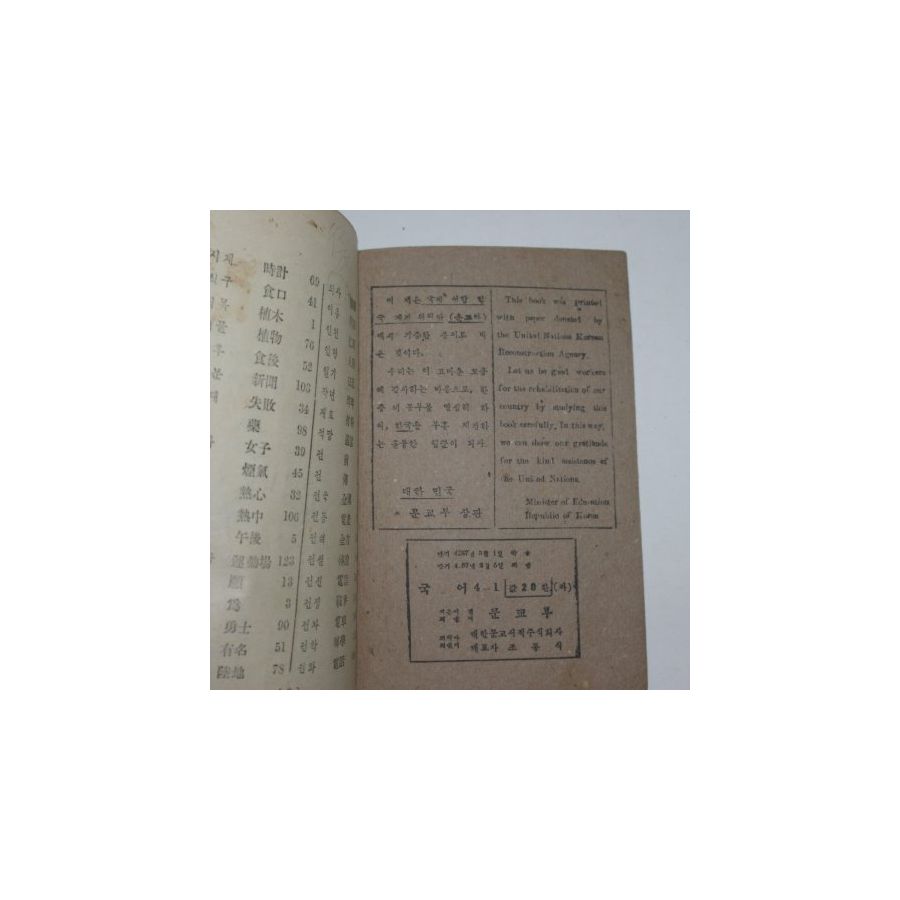 시계 時計 69
식구 食口 41
植木 1
植物 76
食後 52
新聞 103
失敗 34
藥 98
女子 39
煙氣 45
熱心 32
熱中 106
午後 5
運動場 123
願 13
爲 3
勇士 90
有名 51
陸地 78
의사
이름
인원
일기
작년
재료
적당
전
전
전국
전등
전력
전선
전신
전쟁
전차
전학
전화 電話
이 책은 국제 연합 한
국 재건 위원단 (운끄라)
에서 기증한 종이로 박
은 것이다.
우리는 이 고마운 도움
에 감사하는 마음으로, 한
층 더 공부를 열심히 하
여, 한국을 부흥 재건하
는 훌륭한 일꾼이 되자.
대한 민국
문교부 장관
This book was printed
with paper donated by
the United Nations Korean
Reconstruction Agency.
Let us be good workers
for the rehabilitation of our
country by studying this
book carefully. In this way,
we can show our gratitude
for the kind assistance of
the United Nations.
Minister of Education
Republic of Korea
단기 4287년 3월 1일 박음
국 어 4-1 값 20환
문교부
대한문교서적주식회사
대표자 조 동 식